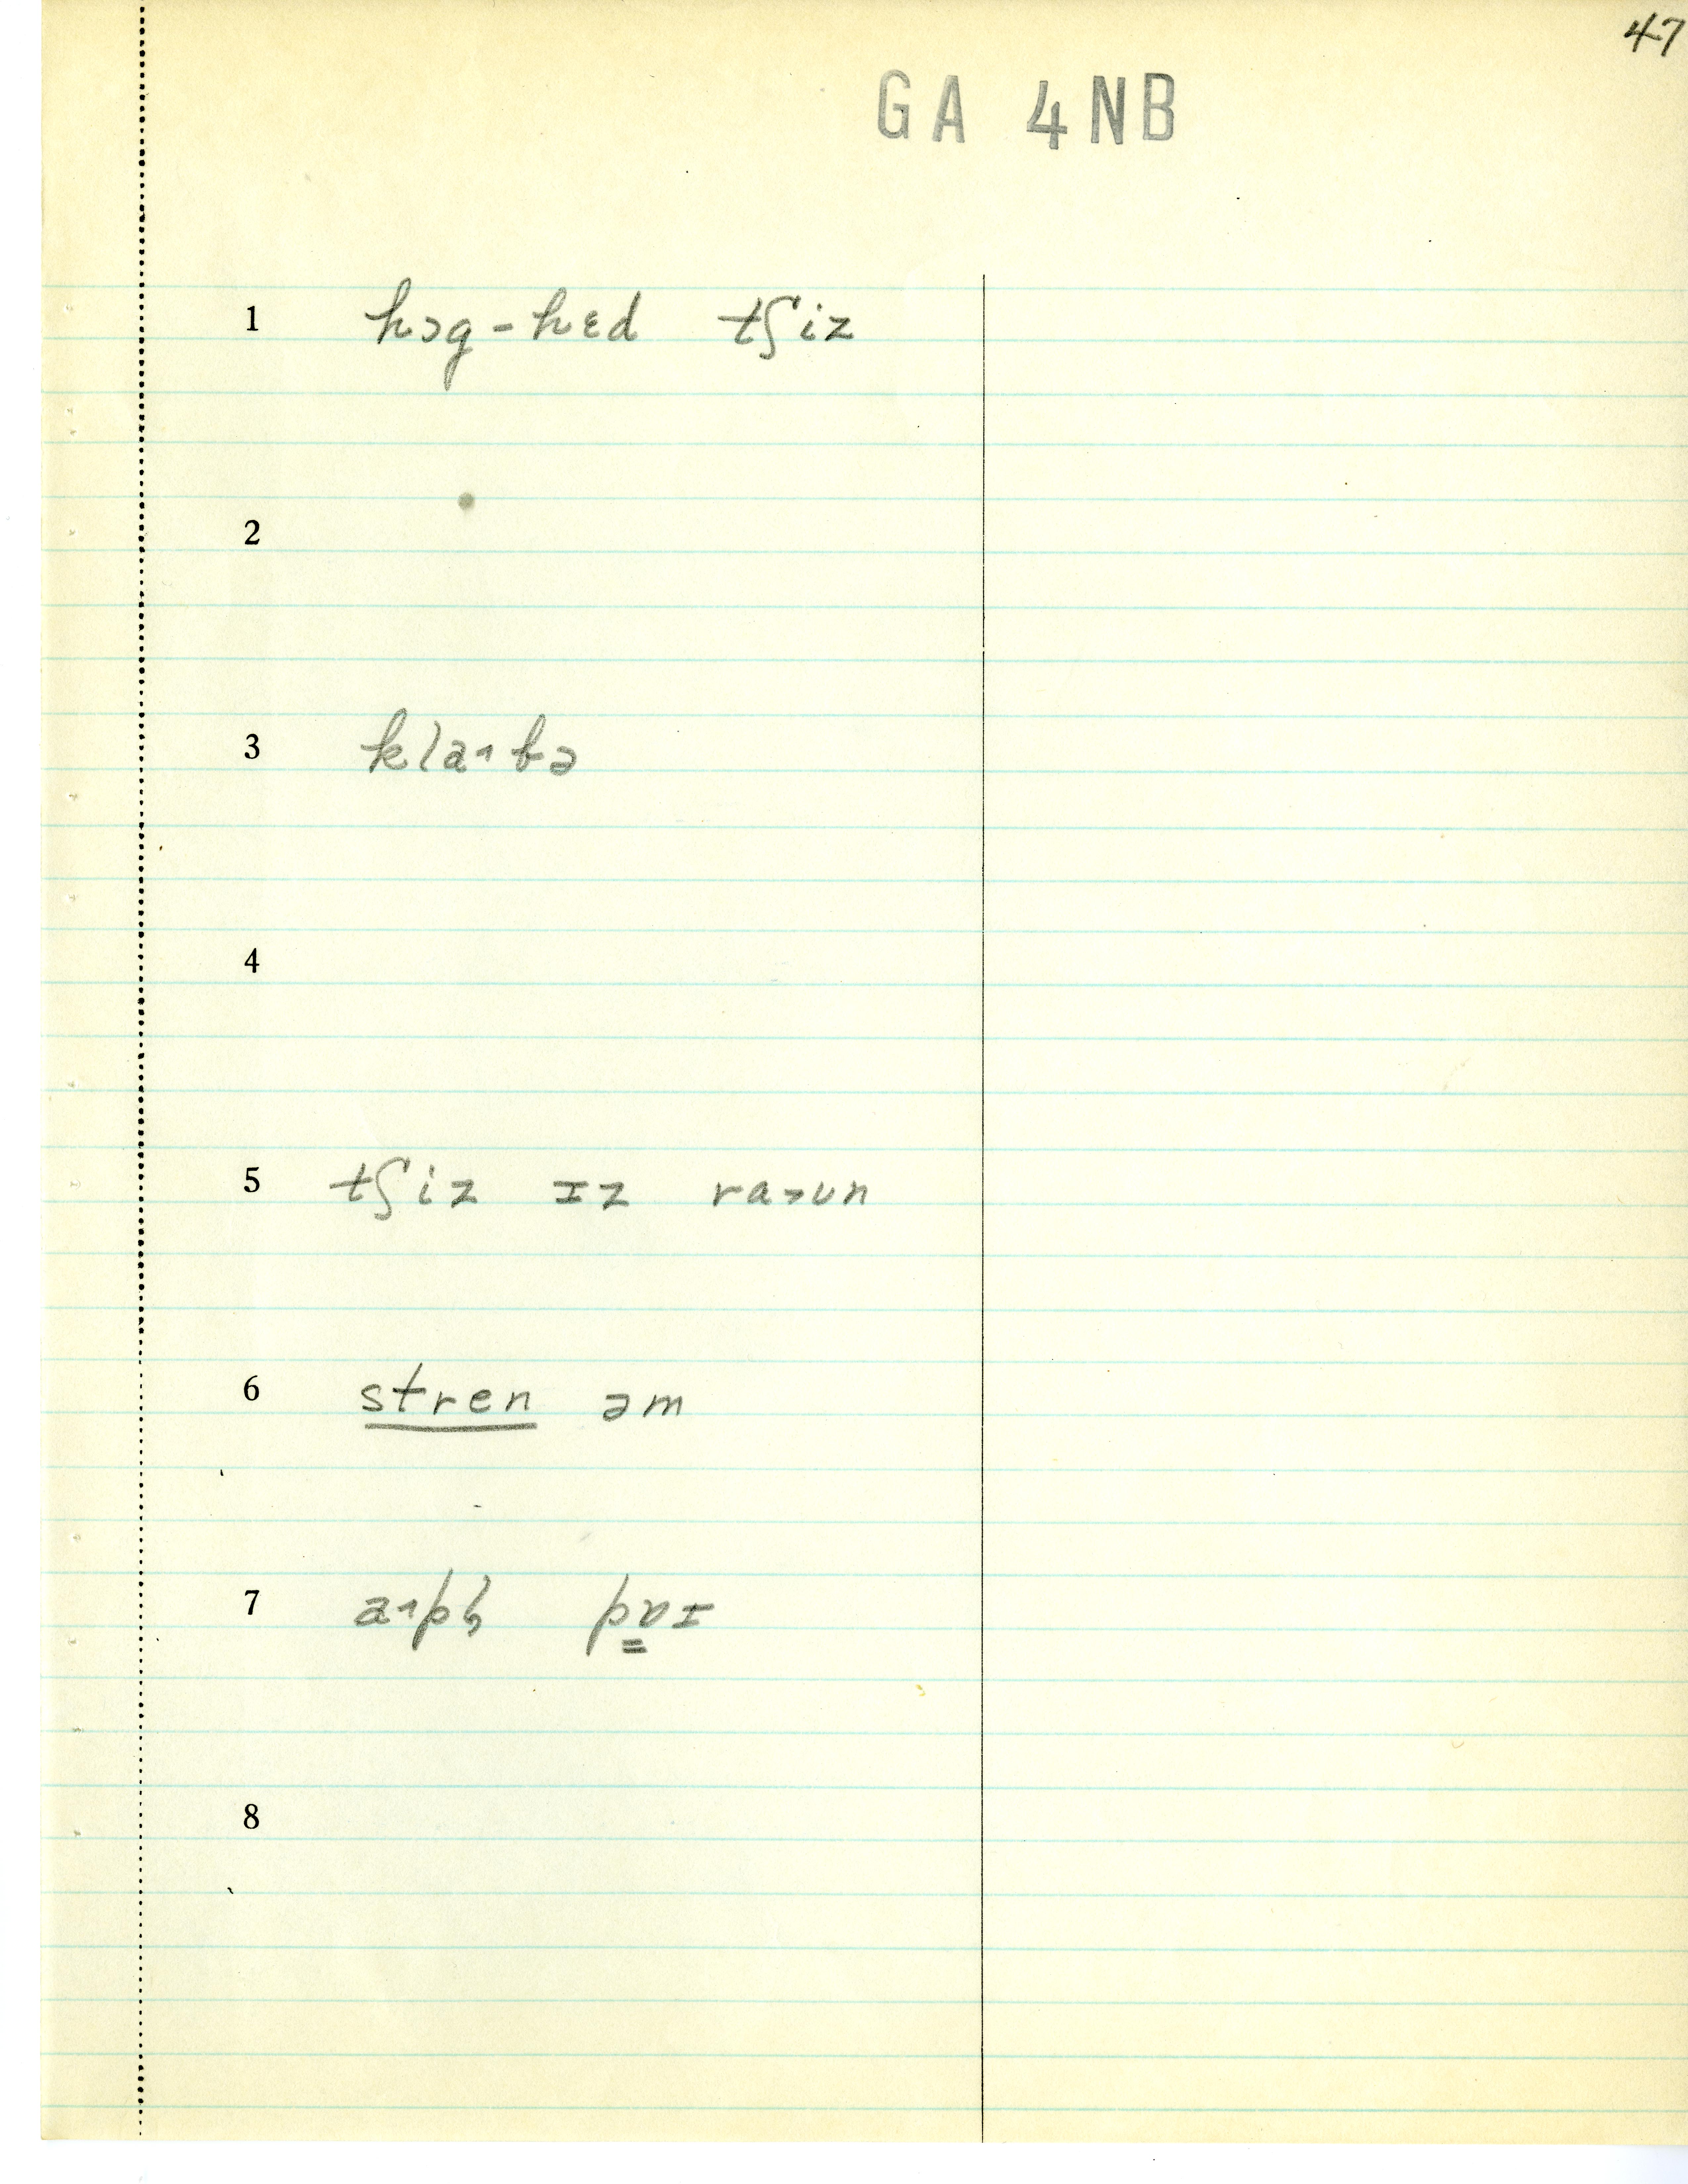 47
GA 4NB
1 hɔg-hɛd tʃiz
2
3 kla˄bə
4
5 tʃiz ɪz ra˃ʊn
6 stren əm
7 a˄pḷ pɒɪ
8